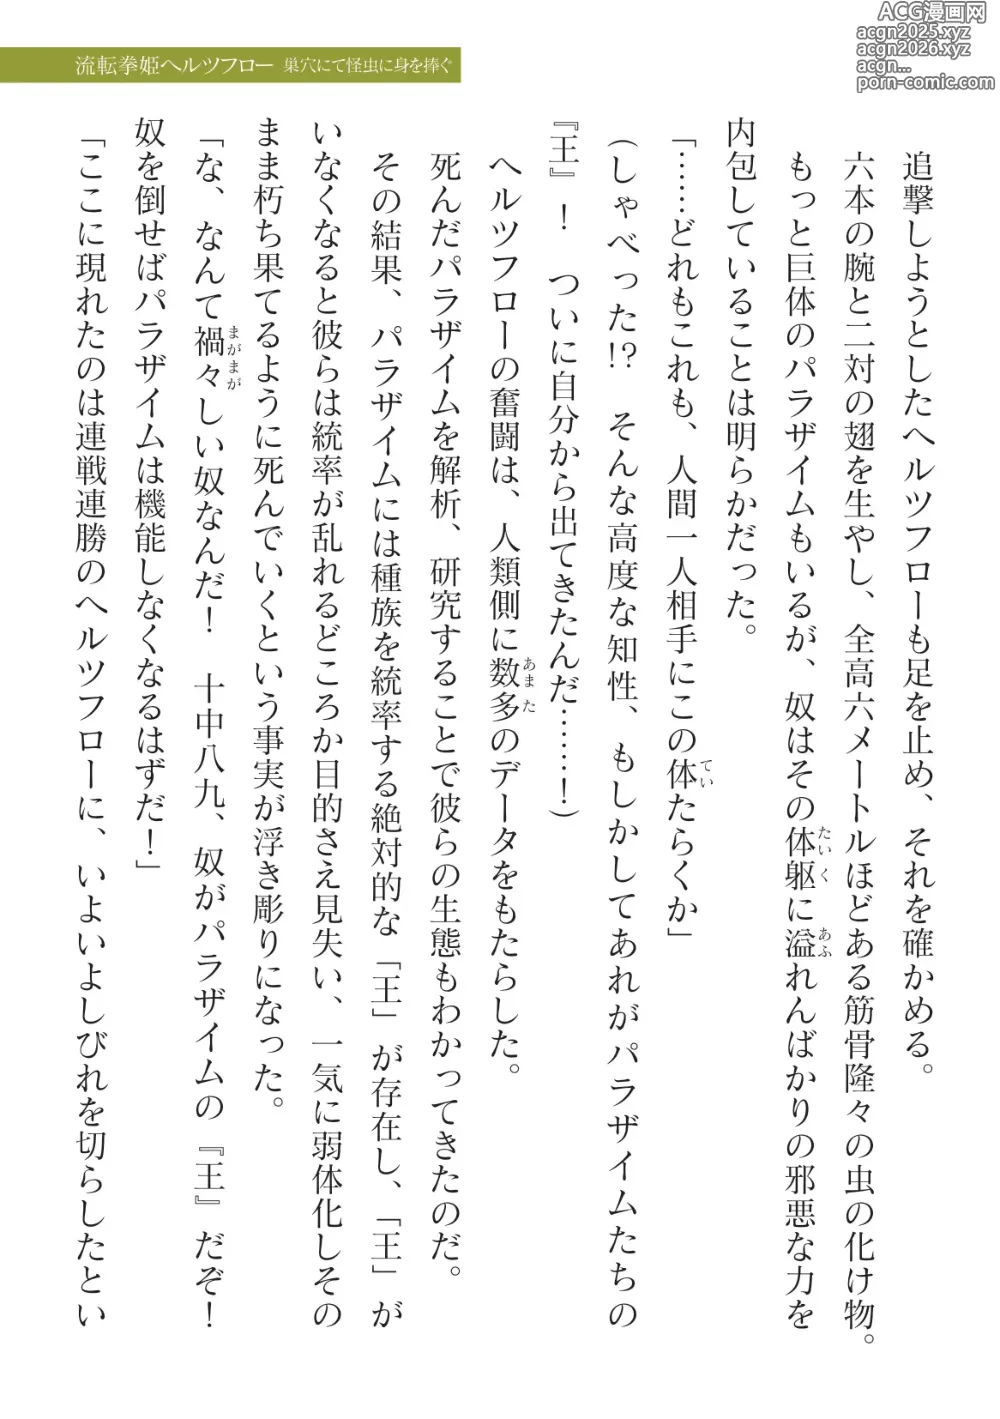 ACG漫画网
acgn2025.xyz
acgn2026.xyz
acgn...
porn-comic.com
流転拳姫ヘルツフロー 巣穴にて怪虫に身を捧ぐ
追撃しようとしたヘルツフローも足を止め、それを確かめる。
六本の腕と二対の翅を生やし、全高六メートルほどある筋骨隆々の虫の化け物。
もっと巨体のパラザイムもいるが、奴はその体躯に溢れんばかりの邪悪な力を
内包していることは明らかだった。
「……どれもこれも、人間一人相手にこの体たらくか」
（しゃべった!?　そんな高度な知性、もしかしてあれがパラザイムたちの
『王』！　ついに自分から出てきたんだ……！）
ヘルツフローの奮闘は、人類側に数多のデータをもたらした。
死んだパラザイムを解析、研究することで彼らの生態もわかってきたのだ。
その結果、パラザイムには種族を統率する絶対的な「王」が存在し、「王」が
いなくなると彼らは統率が乱れるどころか目的さえ見失い、一気に弱体化しその
まま朽ち果てるように死んでいくという事実が浮き彫りになった。
「な、なんて禍々しい奴なんだ！　十中八九、奴がパラザイムの『王』だぞ！
奴を倒せばパラザイムは機能しなくなるはずだ！」
「ここに現れたのは連戦連勝のヘルツフローに、いよいよしびれを切らしたとい